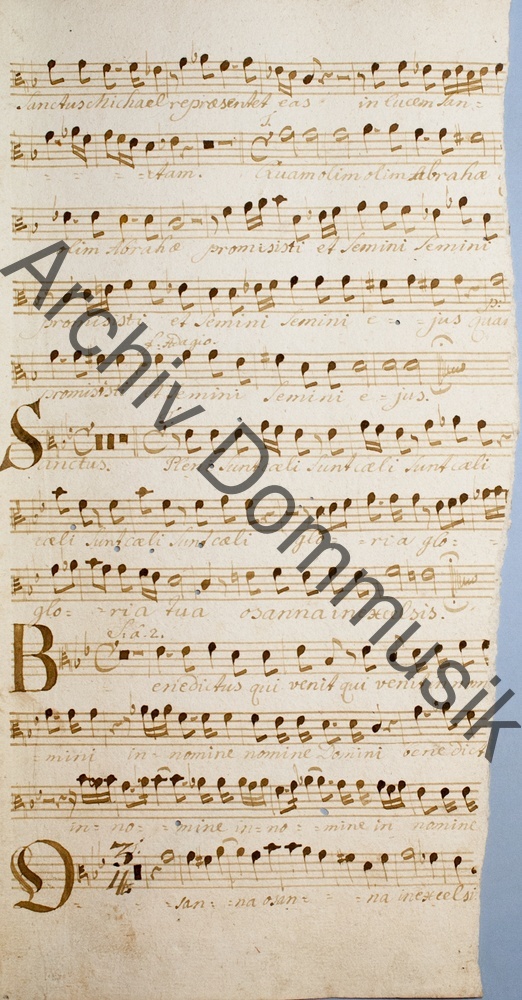 Sanctus Michael repræsentet eas in lucem San=
= = = ctam. Quam olim olim Abrahæ
olim Abrahæ promisisti et Semini Semini
promisisti et Semini Semini e = = jus quam
Adagio.
promisisti et Semini Semini e = jus.
Sanctus. Pleni Sunt cæli Sunt cæli Sunt cæli
cæli Sunt cæli Sunt cæli glo = = ria glo = =
glo = = ria tua osanna in excelsis.
à 2.
Benedictus qui venit qui venit
= mini in = nomine nomine Domini benedict
in = no = = mine in = no = = mine in nomine
3/4
O = san = = na osan = = na in excelsi
Archiv Dommusik